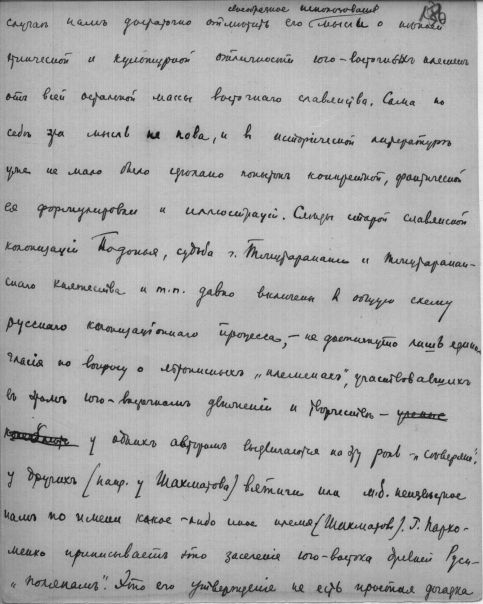 своеобразное использование
случаѣ намъ достаточно отмѣтить его мысль о полной
этнической и культурной отличности юго-восточныхъ племенъ
отъ всей остальной массы восточнаго славянства. Сама по
себѣ эта мысль не нова, и въ исторической литературѣ
уже не мало было сдѣлано попытокъ конкретной, фактической
ея формулировки и иллюстраціи. Слѣды старой славянской
колонизаціи Подонья, судьба г. Тмутаракани и Тмутаракан-
скаго княжества и т.п. давно включены въ общую схему
русскаго колонизаціоннаго процесса, – не достигнуто лишь едино-
гласія по вопросу о лѣтописныхъ „племенахъ", участвовавшихъ
въ этомъ юго-восточномъ движеніи и творчествѣ –
у однихъ авторовъ выдвигаются на эту роль „сѣверяне",
у другихъ (напр. у Шахматова) вятичи или м.б. неизвѣстное
намъ по имени какое-либо иное племя (Шахматов). Г. Пархо-
менко приписываетъ это заселеніе юго-востока древней Руси
„полянамъ". Это его утвержденіе не есть простая догадка